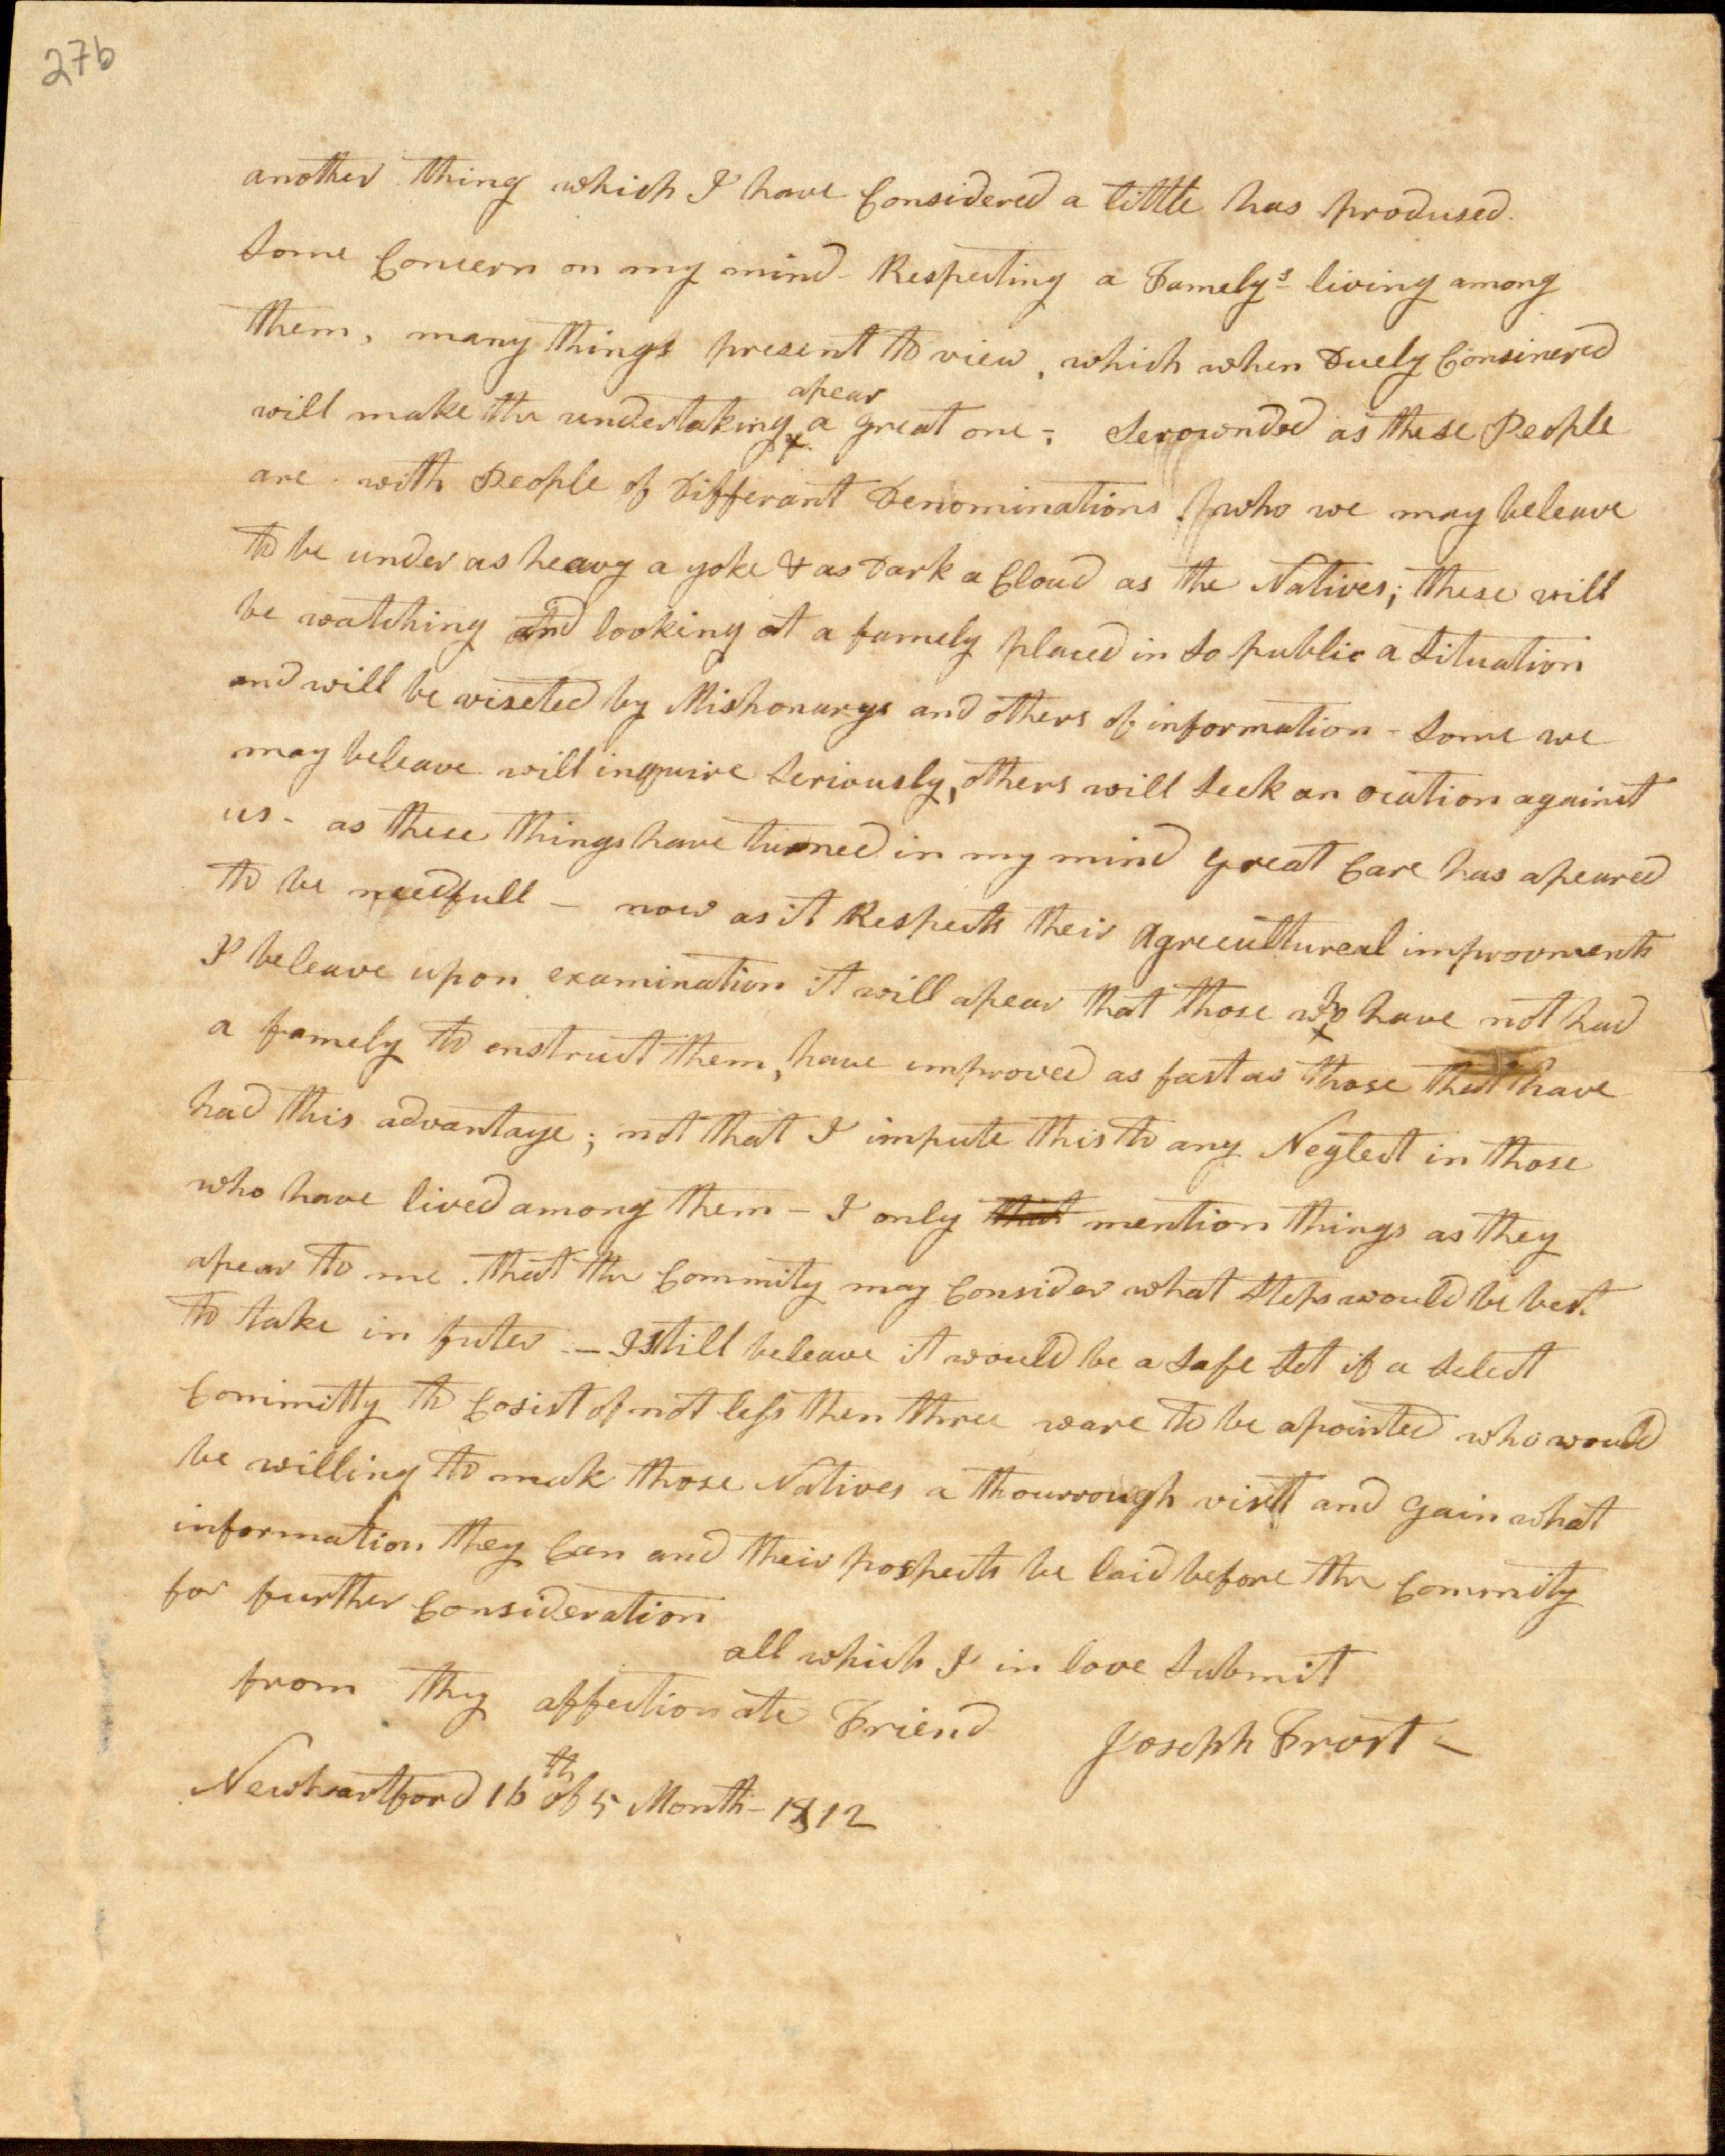 27b
another thing which I have Considered a little has prodused
some Concern on my mind - Respecting a Famelys living among
them, many things present to view, which when Duely Consinered
will make the undertaking apear a great one - Serownded as these People
are with People of Differant Denominations who we may beleave
to be under as heavy a yoke & as Dark a Cloud as the Natives; these will
be watching and looking at a famely placed in so public a situation
and will be viseted by Mishonarys and others of information - some we
may beleave will inquire seriously, others will seek an ocation against
us - as these things have turned in my mind great Care has apeared
to be needfull - now as it Respects their Agreecultureal improvments
I beleave upon examination it will apear that those who have not had
a famely to enstruct them, have improved as fast as those that have
had this advantage; not that I impute this to any Neglect in those
who have lived among them - I only that mention things as they
apear to me that the Commity may Consider what steps would be best
to take in futer - I still beleave it would be a safe st if a select
Committy to Cosist of not less then three ware to be apointed who would
be willing to mak those Natives a thourrough visit and gain what
information they Can and their pospects be laid before the Commity
for further Consideration
all which I in love submit
from thy affectionate Friend Joseph Frost
Newhartford 16th of 5 Month - 1812